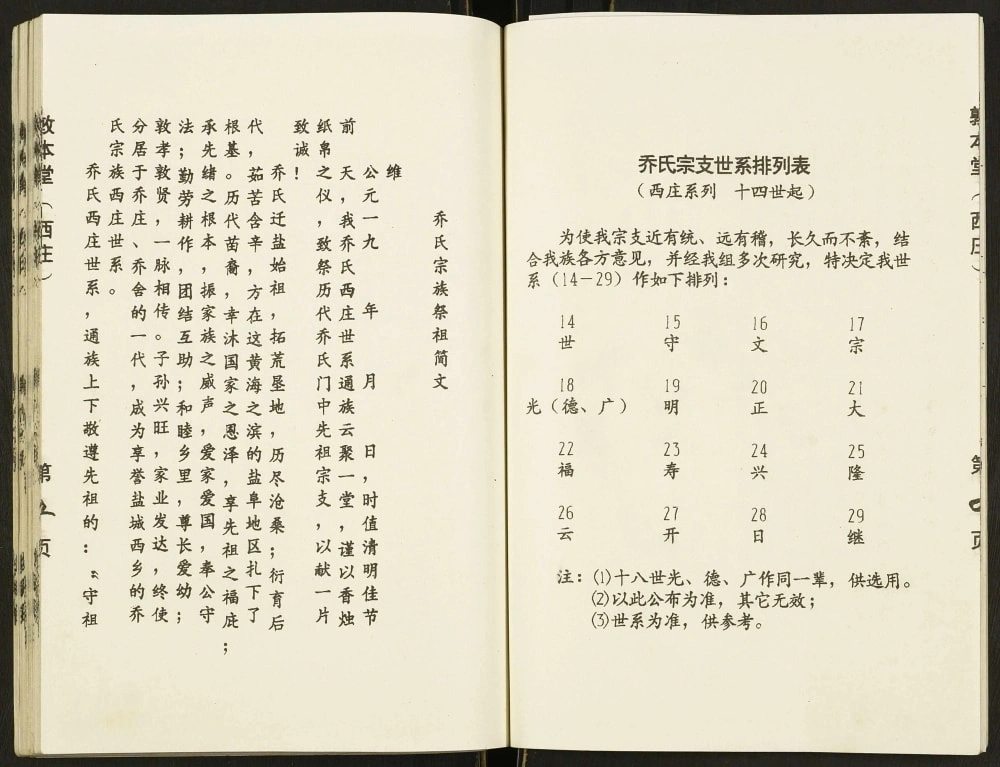 乔氏宗支世系排列表
（西庄系列　十四世起）
为使我宗支近有统、远有稽，长久而不紊，结
合我族各方意见，并经我组多次研究，特决定我世
系（14－29）作如下排列：
14 15 16 17
世 守 文 宗
18 19 20 21
光（德、广） 明 正 大
22 23 24 25
福 寿 兴 隆
26 27 28 29
云 开 日 继
注：⑴十八世光、德、广作同一辈，供选用。
⑵以此公布为准，其它无效；
⑶世系为准，供参考。
敦本堂（西庄）
第 页
乔氏宗族祭祖简文
维
公元一九　年　月　日，时值清明佳节
前　天，我乔氏西庄世系通族云聚一堂，谨以香烛
纸帛之仪，致祭历代乔氏门中先祖宗支，以献一片
致诚！
乔氏迁盐始祖，拓荒垦地，历尽沧桑；衍育后
代，茹苦含辛，方在这黄海之滨的盐阜地区扎下了
根基。历代苗裔，幸沐国家之恩泽，享先祖之福庇；
承先绪之根本，振家族之威声，爱家爱国，奉公守
法；勤劳耕作，团结互助；和睦乡里，尊长爱幼；
敦孝敦贤，一脉相传。子孙兴旺，家业发达，终使
分居于乔庄、乔舍的一代，成为享誉盐城西乡的乔
氏宗族西庄世系。
乔氏西庄世系，通族上下敬遵先祖的：“守祖
敦本堂（西庄）
第 页